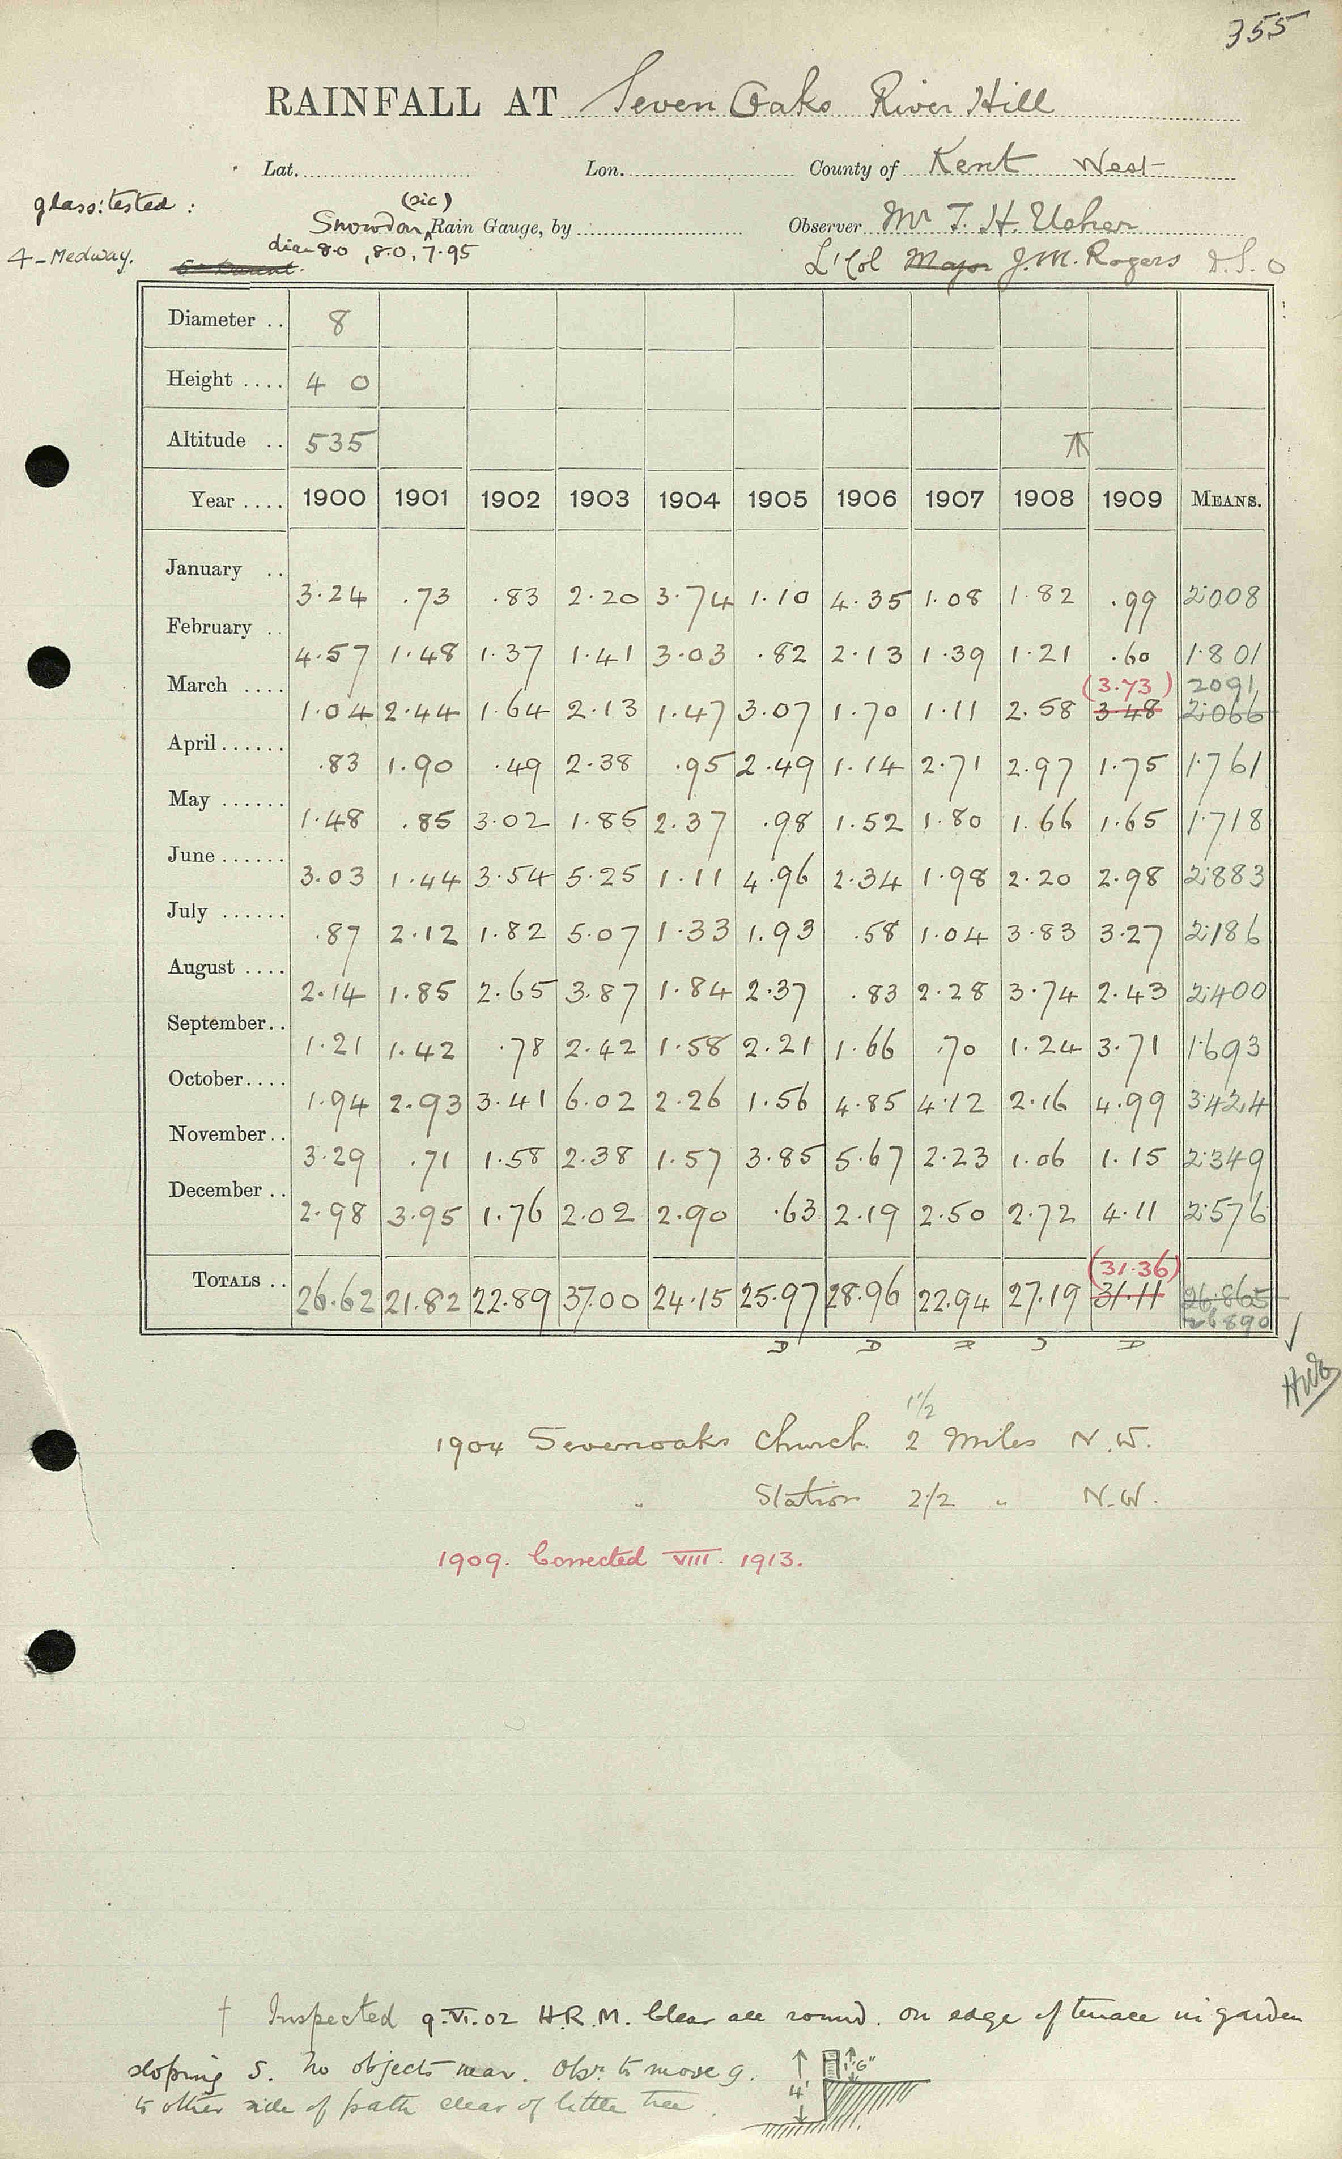 355
RAINFALL AT Seven Oaks River Hill
Lat. Lon. County of Kent West
glass: tested: (sic)
Snowdon Rain Gauge, by Observer Mr T. H. Usher
4-Medway. dia 8.0, 8.0, 7.95 Lt Col Major J. M. Rogers D.S.O
Diameter .. 8
Height .... 4 0
Altitude .. 535
Year .... 1900 1901 1902 1903 1904 1905 1906 1907 1908 1909 MEANS.
January .. 3.24 .73 .83 2.20 3.74 1.10 4.35 1.08 1.82 .99 2.008
February .. 4.57 1.48 1.37 1.41 3.03 .82 2.13 1.39 1.21 .60 1.801
(3.73) 2091
March .... 1.04 2.44 1.64 2.13 1.47 3.07 1.70 1.11 2.58 3.48 2.066
April ...... .83 1.90 .49 2.38 .95 2.49 1.14 2.71 2.97 1.75 1.761
May ...... 1.48 .85 3.02 1.85 2.37 .98 1.52 1.80 1.66 1.65 1.718
June ...... 3.03 1.44 3.54 5.25 1.11 4.96 2.34 1.98 2.20 2.98 2.883
July ...... .87 2.12 1.82 5.07 1.33 1.93 .58 1.04 3.83 3.27 2.186
August .... 2.14 1.85 2.65 3.87 1.84 2.37 .83 2.28 3.74 2.43 2.400
September.. 1.21 1.42 .78 2.42 1.58 2.21 1.66 .70 1.24 3.71 1.693
October.... 1.94 2.93 3.41 6.02 2.26 1.56 4.85 4.12 2.16 4.99 3.424
November.. 3.29 .71 1.58 2.38 1.57 3.85 5.67 2.23 1.06 1.15 2.349
December .. 2.98 3.95 1.76 2.02 2.90 .63 2.19 2.50 2.72 4.11 2.576
(31.36)
TOTALS .. 26.62 21.82 22.89 37.00 24.15 25.97 28.96 22.94 27.19 31.11 26.865
26890
1 1/2
1904 Sevenoaks Church 2 Miles N.W.
" Station 2 1/2 " N.W.
1909. Corrected VIII. 1913.
† Inspected 9.VI.02 H.R.M. Clear all round. on edge of terrace in garden
sloping S. No objects near. Obsr. to move g. 4' 1'6"
to other side of path clear of little tree.